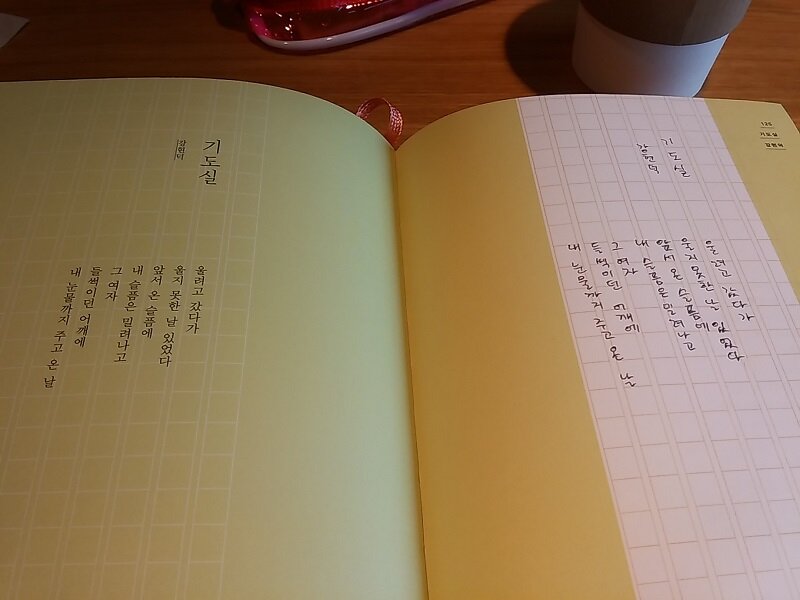 기도실
강현덕
울려고 갔다가
울지 못한 날 있었다
앞서 온 슬픔에
내 슬픔은 밀려나고
그 여자
들썩이던 어깨에
내 눈물까지 주고 온 날
125
기도실
강현덕
기도실
강현덕
울려고 갔다가
울지 못한 날 있었다
앞서 온 슬픔에
내 슬픔은 밀려나고
그 여자
들썩이던 어깨에
내 눈물까지 주고 온 날